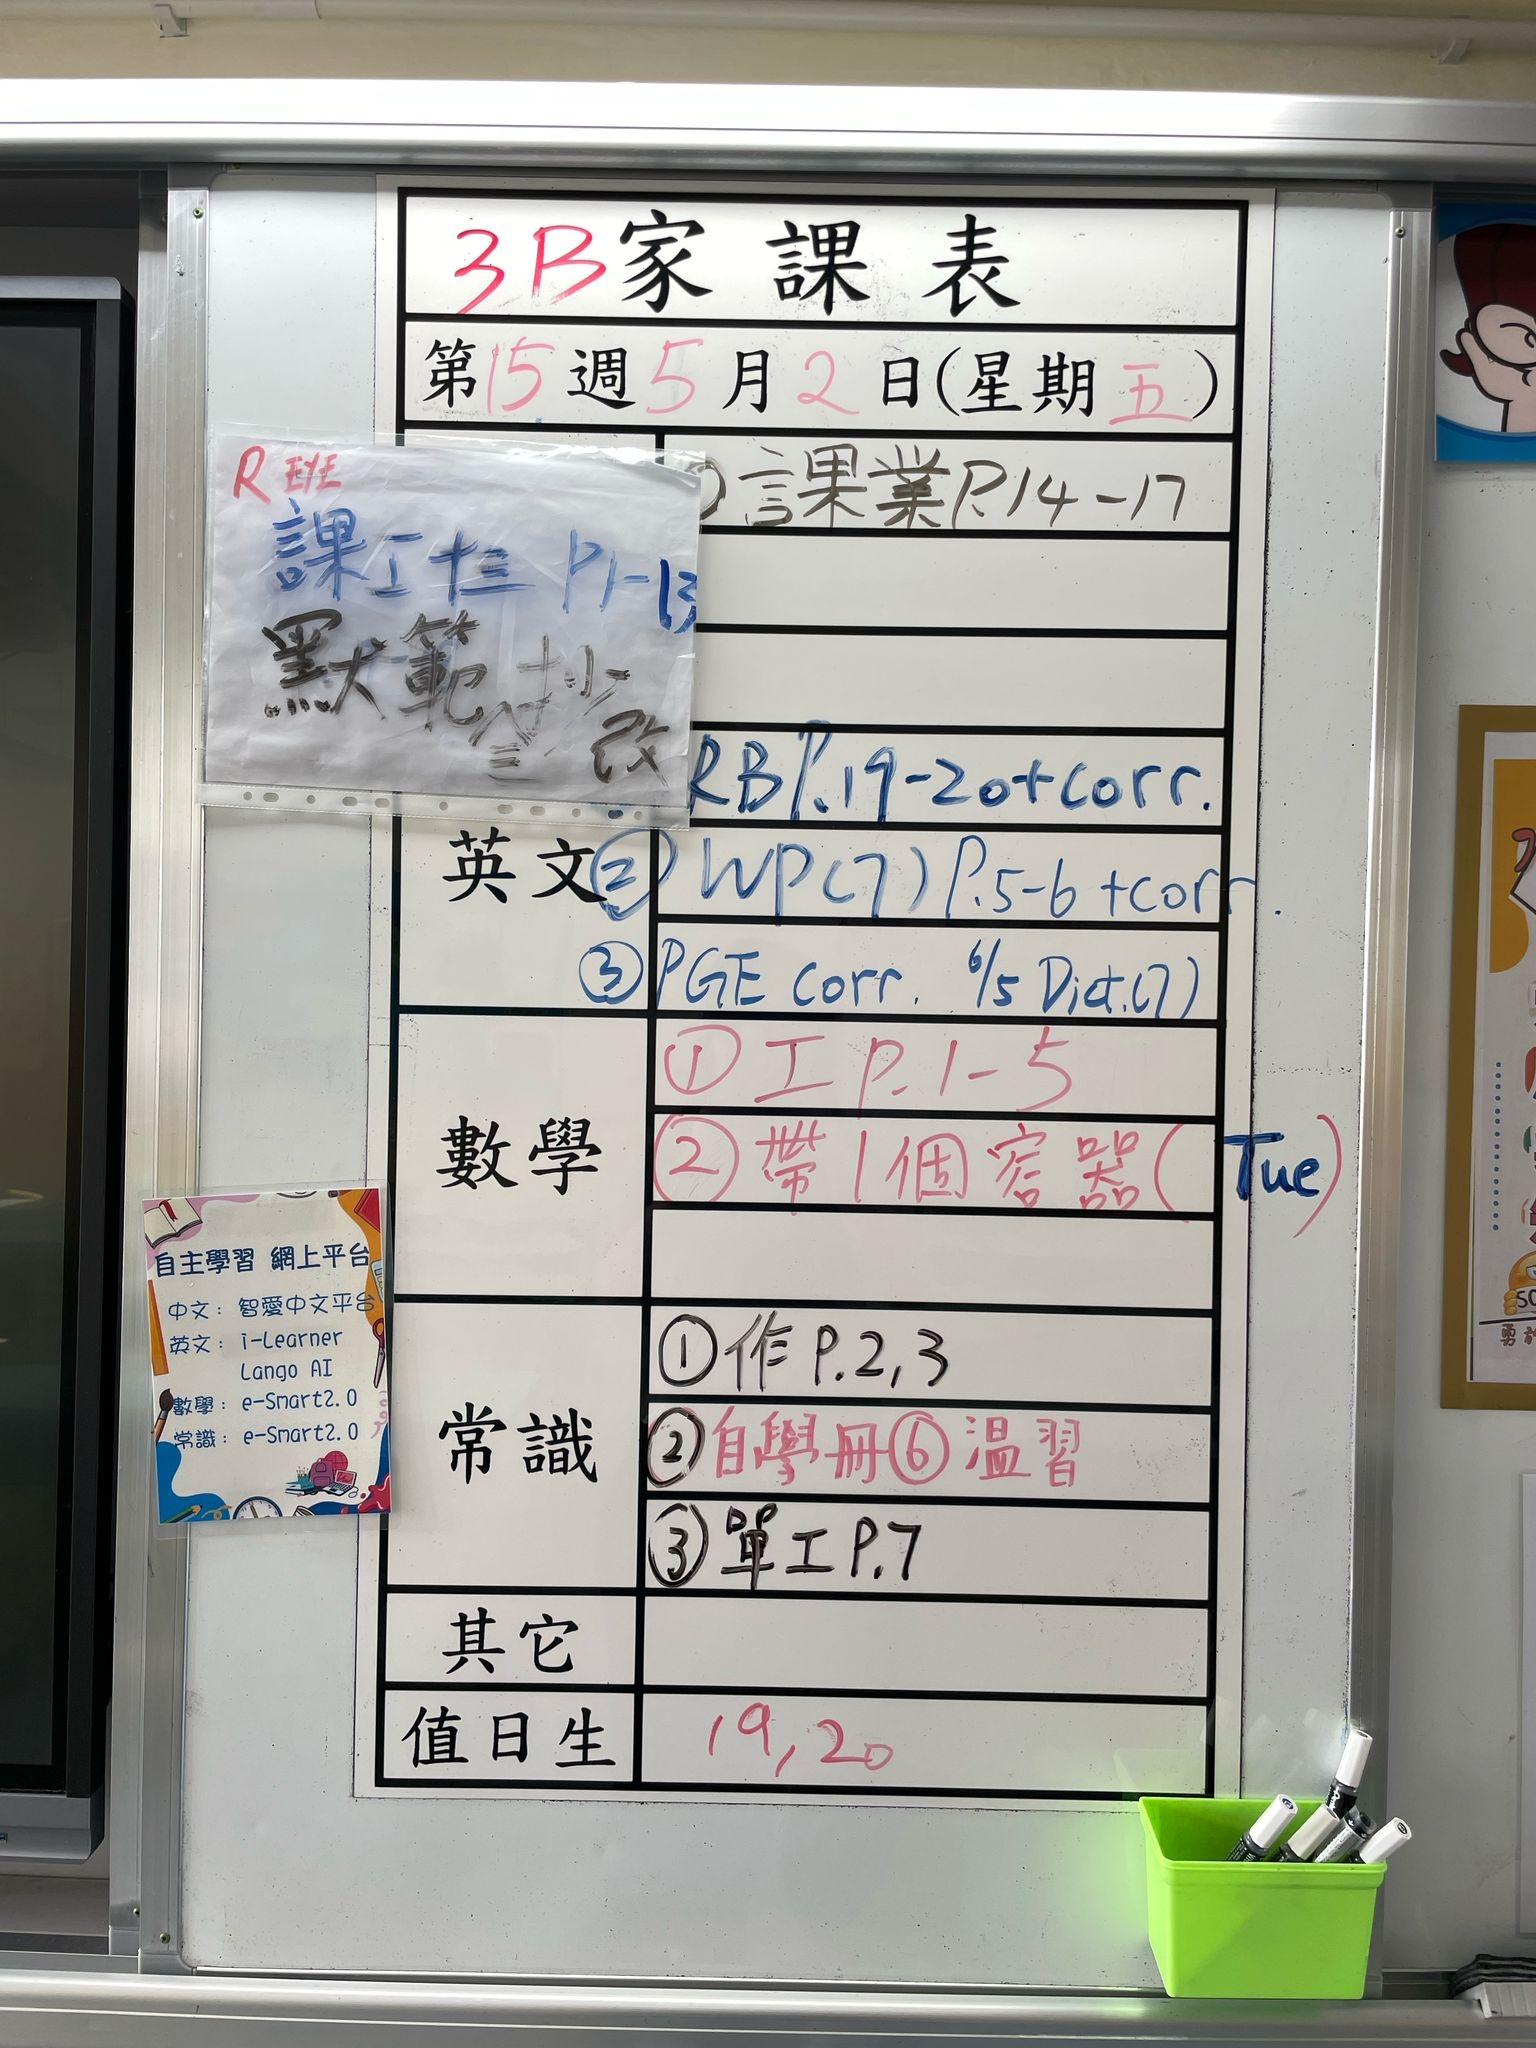 3B家課表
第15週5月2日(星期五)
R EYE
課工十三 P1-13
默範 抄
改
課業P.14-17
英文
RB P.19-20+corr.
② WP(7) P.5-6 +corr.
③ PGE corr. 6/5 Dict.(7)
數學
① 工 P.1-5
② 帶1個容器(Tue)
常識
① 作 P.2,3
② 自學冊⑥溫習
③ 單工 P.7
其它
值日生
19,20
自主學習 網上平台
中文: 智愛中文平台
英文: i-Learner
Lango AI
數學: e-Smart2.0
常識: e-Smart2.0